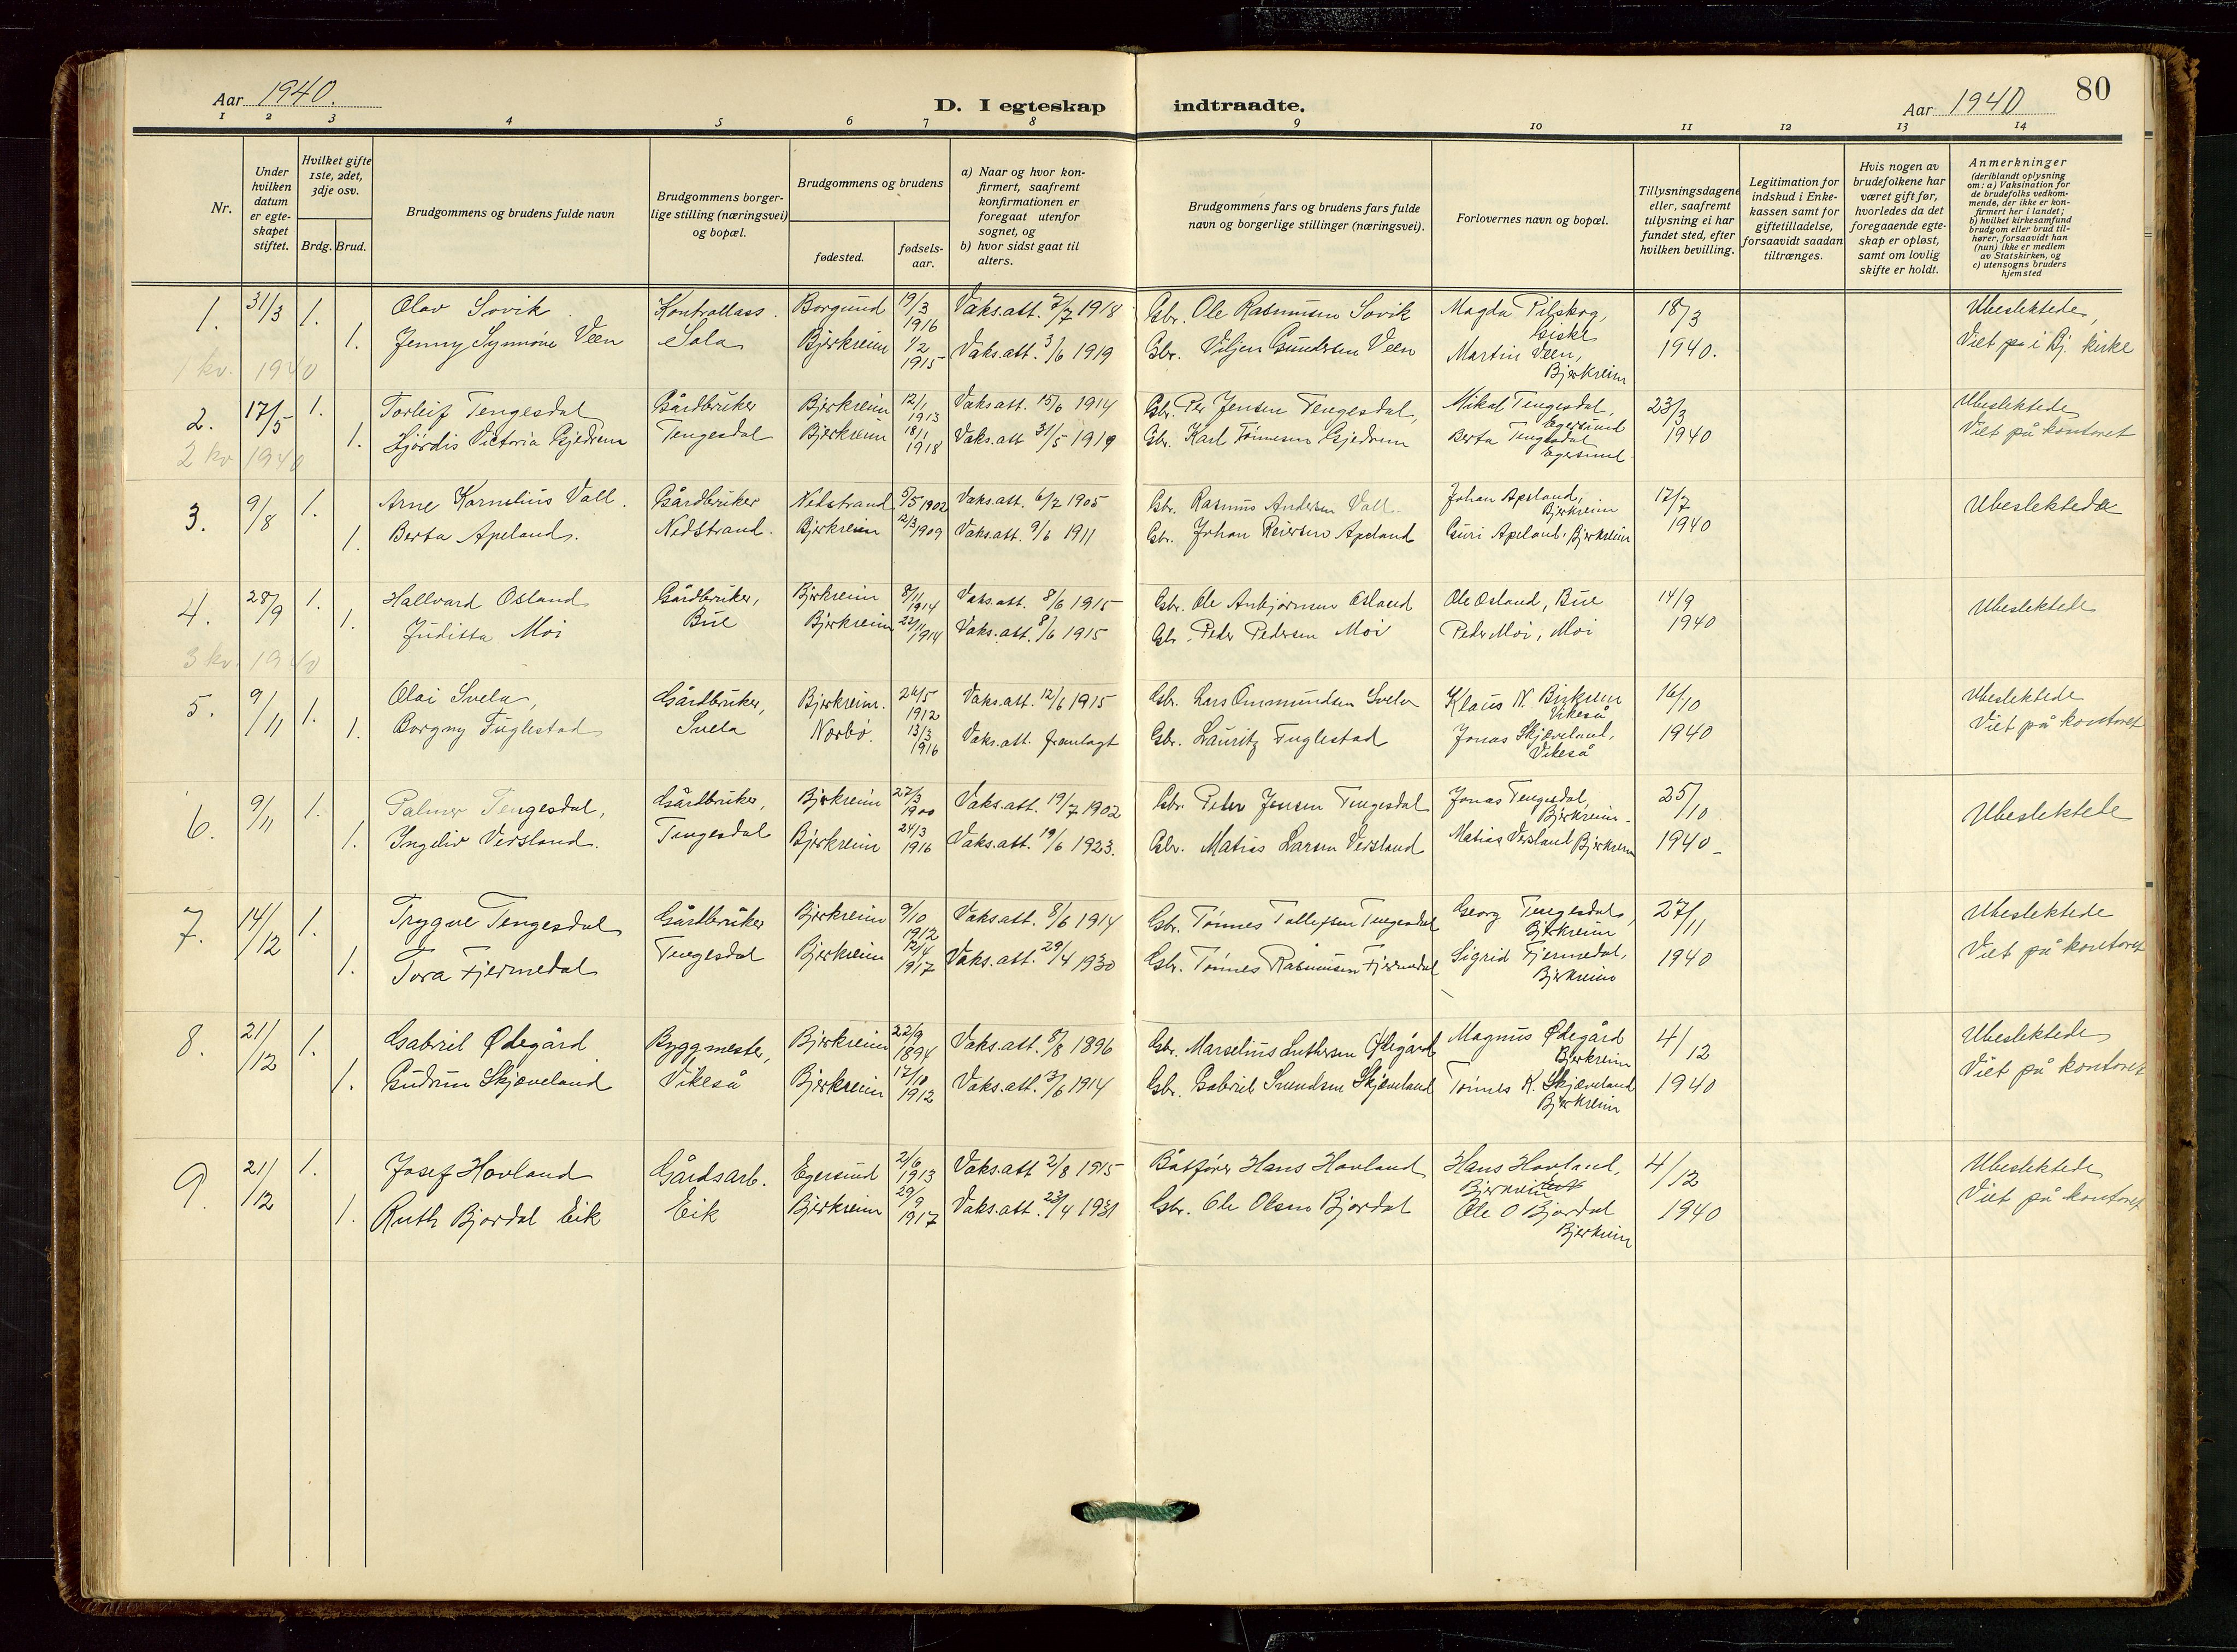 80
Aar 1940. D. I egteskap indtraadte. Aar 1940
1 2 3 4 5 6 7 8 9 10 11 12 13 14
Nr.
Under hvilken datum er egteskapet stiftet.
Hvilket gifte 1ste, 2det, 3dje osv.
Brdg. Brud.
Brudgommens og brudens fulde navn
Brudgommens borgerlige stilling (næringsvei) og bopæl.
Brudgommens og brudens
fødested.
fødselsaar.
a) Naar og hvor konfirmert, saafremt konfirmationen er foregaat utenfor sognet, og
b) hvor sidst gaat til alters.
Brudgommens fars og brudens fars fulde navn og borgerlige stillinger (næringsvei).
Forlovernes navn og bopæl.
Tillysningsdagene eller, saafremt tillysning ei har fundet sted, efter hvilken bevilling.
Legitimation for indskud i Enkekassen samt for giftetilladelse, forsaavidt saadan tiltrænges.
Hvis nogen av brudefolkene har været gift før, hvorledes da det foregaaende egteskap er opløst, samt om lovlig skifte er holdt.
Anmerkninger
(deriblandt oplysning om: a) Vaksination for de brudefolks vedkommende, der ikke er konfirmert her i landet;
b) hvilket kirkesamfund brudgom eller brud tilhører, forsaavidt han (hun) ikke er medlem av Statskirken, og
c) utensogns bruders hjemsted
1. 31/3 1. Olav Sovik Kontrollass. Borgund 19/3 1916 Vaks.att. 7/7 1918 Gbr. Ole Rasmussen Sovik Magda Pilskog, Giske 18/3 Ubeslektede,
1. Jenny Synnöve Veen Sola Bjerkreim 1/2 1915 Vaks.att. 3/6 1919 Gbr. Viljen Gundersen Veen Martin Veen, Bjerkreim 1940. Viet i Bj. kirke
1 kv. 1940
2. 17/5 1. Torleif Tengesdal Gårdbruker Bjerkreim 12/1 1913 Vaks.att. 15/6 1914 Gbr. Per Jensen Tengesdal, Mikal Tengesdal, Egersund 23/3 Ubeslektede
1. Hjördis Victoria Gjedrem Tengesdal Bjerkreim 18/1 1918 Vaks.att 31/5 1919 Gbr. Karl Tönnesen Gjedrem Berta Tengesdal Egersund 1940 Viet på kontoret
2 kv 1940
3. 9/8 1. Arne Kornelius Vall. Gårdbruker Nedstrand 5/5 1902 Vaks.att. 6/7 1905 Gbr. Rasmus Andersen Vall. Johan Apeland, Bjerkreim 17/7 Ubeslektede
1. Berta Apeland. Nedstrand. Bjerkreim 12/3 1909 Vaks.att. 9/6 1911 Gbr. Johan Reiersen Apeland Guri Apeland, Bjerkreim 1940
4. 28/9 1. Hallvard Osland Gårdbruker, Bjerkreim 8/11 1914 Vaks.att. 8/6 1915 Gbr. Ole Anbjørnsen Osland Ole Osland, Bue 14/9 Ubeslektede
1. Juditta Moi Bue Bjerkreim 22/11 1914 Vaks.att. 8/6 1915 Gbr. Peder Pedersen Moi Peder Moi, Moi 1940
3 kv. 1940
5. 9/11 1. Olai Svela, Gårdbruker, Bjerkreim. 26/5 1912 Vaks.att. 12/6 1915 Gbr. Lars Ommundsen Svela Klaus N. Birkrem Vikeså 16/10 Ubeslektede
1. Borgny Fuglestad Svela Nærbö. 13/3 1916 Vaks.att. fremlagt Gbr. Lauritz Fuglestad Jonas Skjæveland, Vikeså 1940 Viet på kontoret
6. 9/11 1. Palmer Tengesdal, Gårdbruker, Bjerkreim 27/3 1900 Vaks.att. 19/7 1902 Gbr. Peder Jensen Tengesdal Jonas Tengesdal, Bjerkreim. 25/10 Ubeslektede
1. Ingeliv Versland. Tengesdal Bjerkreim 24/3 1916 Vaks.att. 19/6 1923. Gbr. Matias Larsen Versland Matias Versland Bjerkreim 1940
7. 14/12 1. Trygve Tengesdal Gårdbruker Bjerkreim 9/10 1912 Vaks.att. 8/6 1914 Gbr. Tönnes Tollefsen Tengesdal Georg Tengesdal, Bjerkreim 27/11 Ubeslektede
1. Tora Fjermedal Tengesdal Bjerkreim 12/4 1917 Vaks.att. 29/4 1930 Gbr. Tönnes Rasmussen Fjermedal Sigrid Fjermedal, Bjerkreim 1940 Viet på kontoret
8. 21/12 1. Gabriel Ødegård Byggmester, Bjerkreim 22/9 1894 Vaks.att. 8/8 1896 Gbr. Marselius Luthersen Ødegård Magnus Ødegård Bjerkreim 4/12 Ubeslektede
1. Gudrun Skjæveland Vikeså Bjerkreim 17/10 1912 Vaks.att. 13/6 1914 Gbr. Gabriel Svendsen Skjæveland Tönnes K. Skjæveland Bjerkreim 1940 Viet på kontoret
9. 21/12 1. Josef Hovland Gårdsarb. Egersund 2/6 1913 Vaks.att 2/8 1915 Båtförer Hans Hovland Hans Hovland, 4/12 Ubeslektede
1. Ruth Bjordal Eik Eik Bjerkreim 29/9 1917 Vaks.att. 23/4 1931 Gbr. Ole Olsen Bjordal Ole O Bjordal Bjerkreim 1940 Viet på kontoret